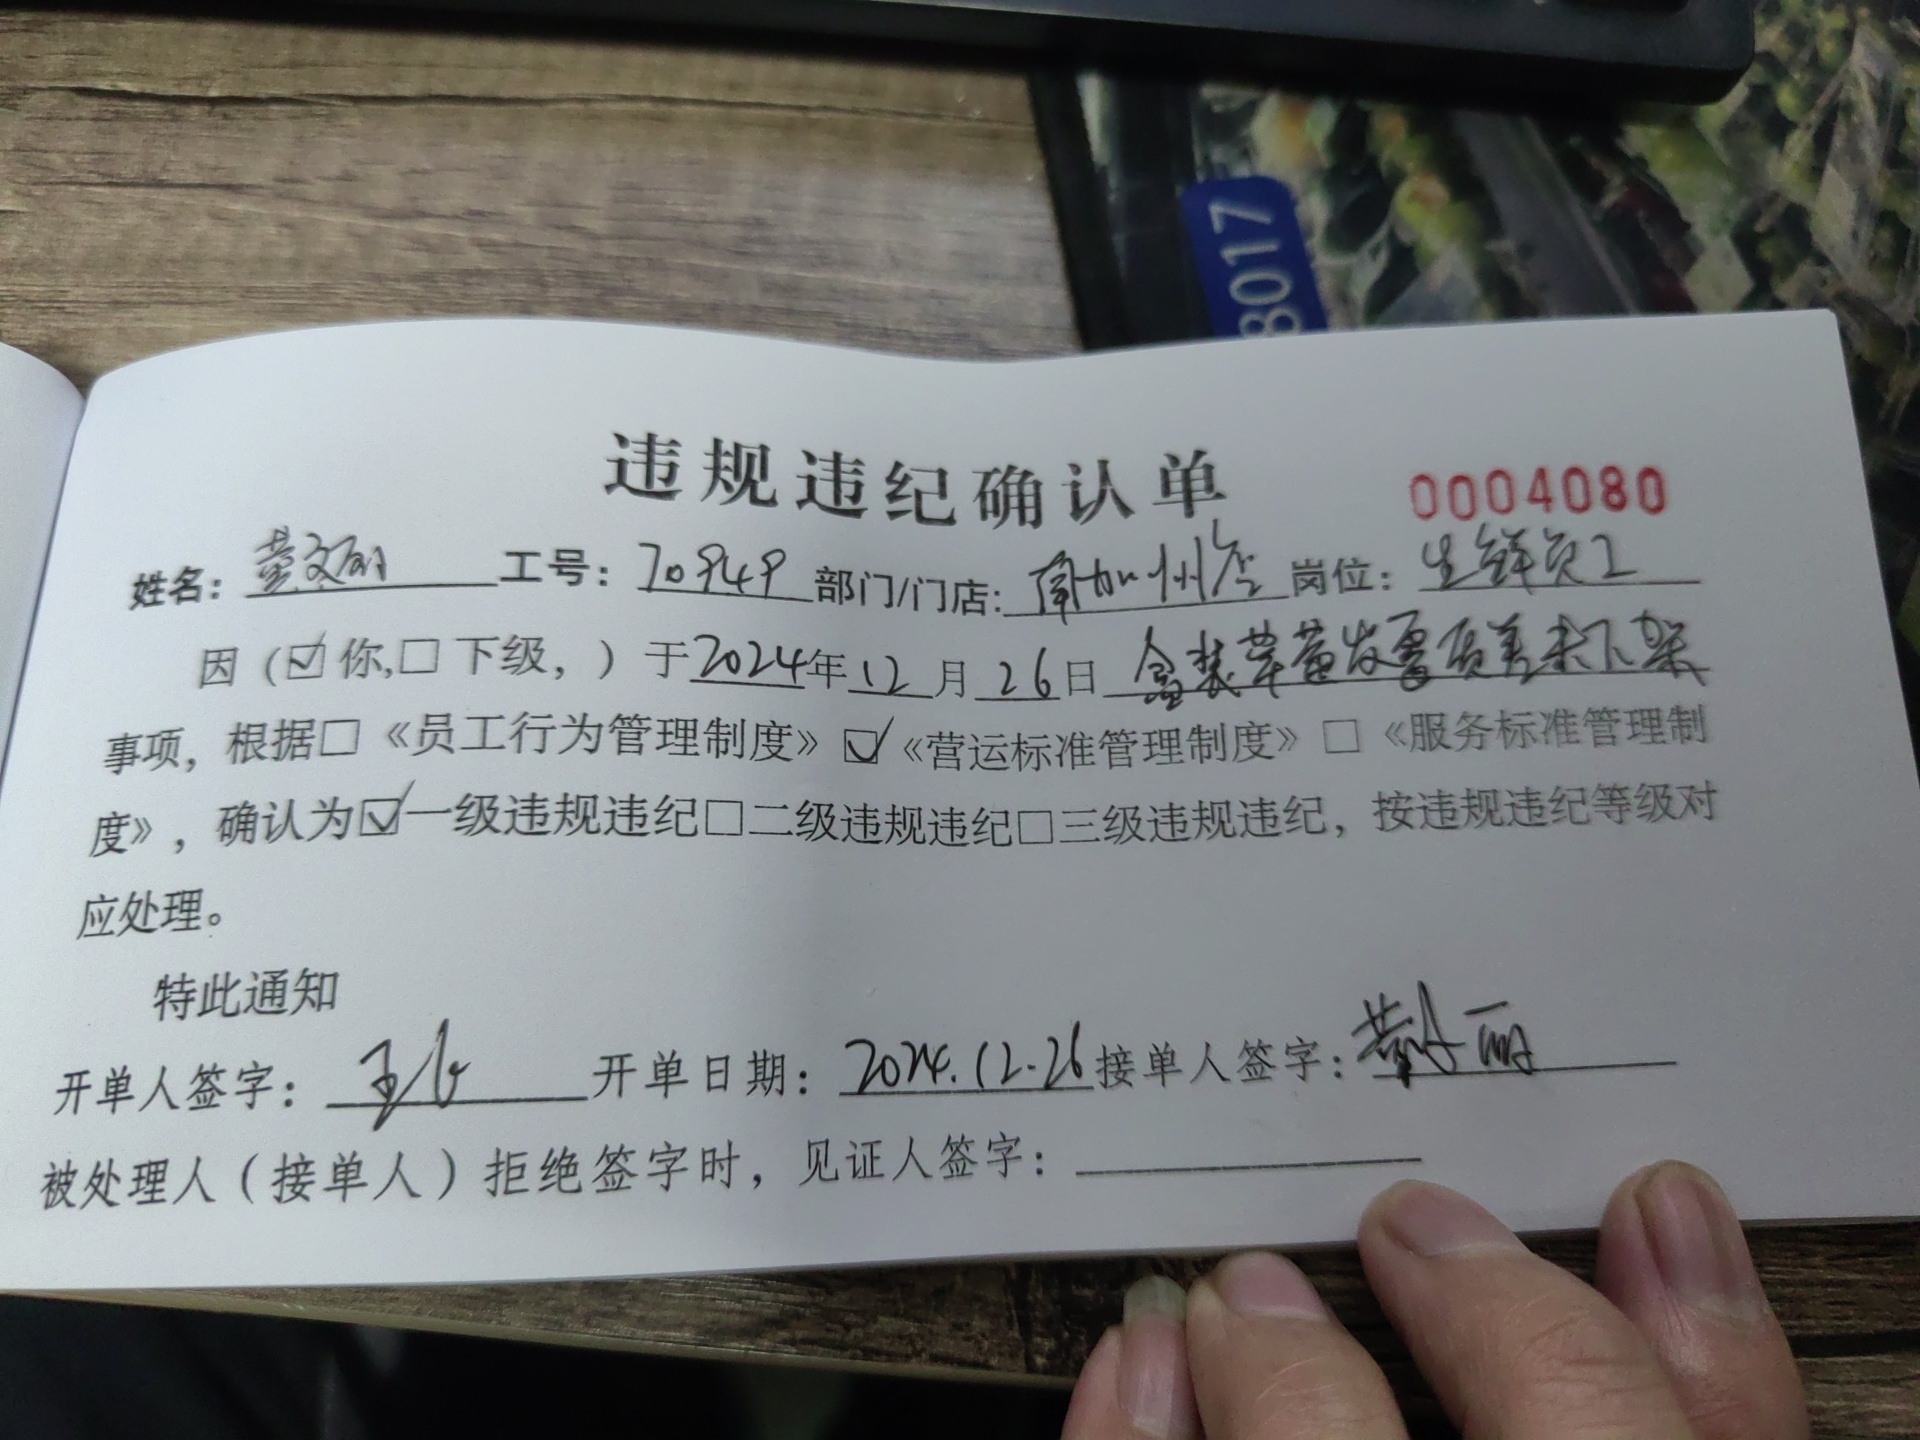 8017
违规违纪确认单 0004080
姓名: 黄文丽 工号: 70949 部门/门店: 南加州店 岗位: 生鲜员工
因 (☑你,□下级, ) 于2024年12月26日 盒装草莓发霉质差未下架
事项, 根据□《员工行为管理制度》☑《营运标准管理制度》□《服务标准管理制
度》, 确认为☑一级违规违纪□二级违规违纪□三级违规违纪, 按违规违纪等级对
应处理。
特此通知
开单人签字: 开单日期: 2024.12.26 接单人签字: 黄文丽
被处理人(接单人)拒绝签字时, 见证人签字: